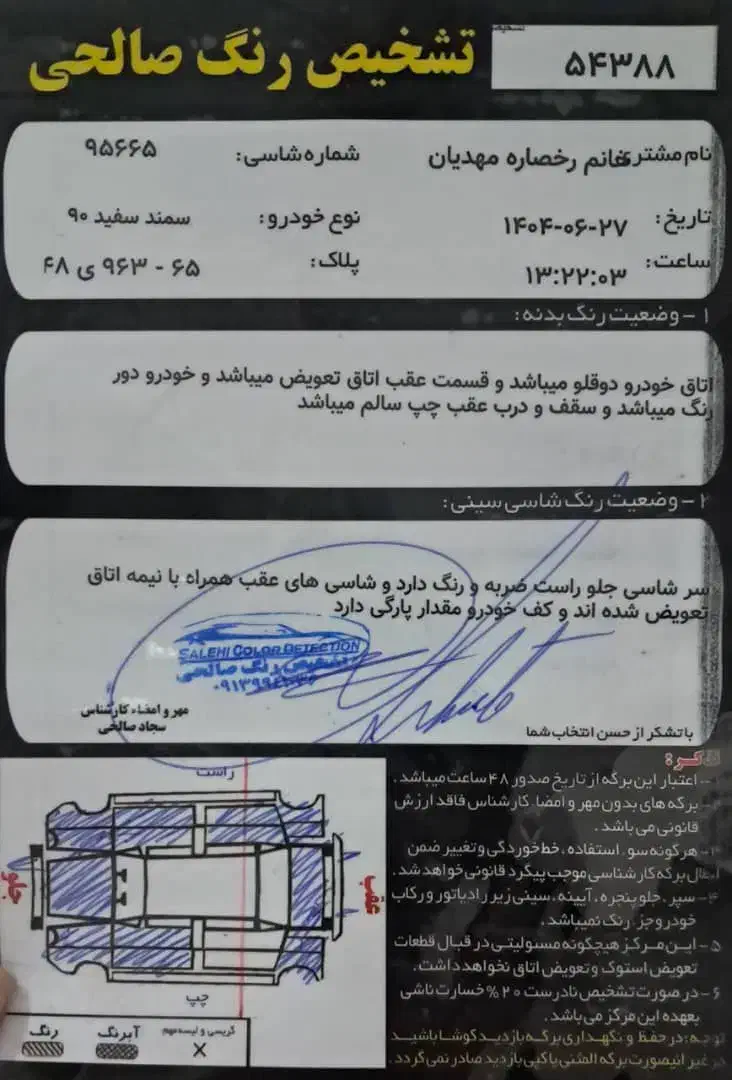 تشخیص رنگ صالحی
۵۴۳۸۸
نام مشتری: خانم رخصاره مهدیان
شماره شاسی: ۹۵۶۶۵
تاریخ: ۱۴۰۴-۰۶-۲۷
نوع خودرو: سمند سفید ۹۰
ساعت: ۱۳:۲۲:۰۳
پلاک: ۶۵ - ۹۶۳ ی ۴۸
۱ - وضعیت رنگ بدنه:
اتاق خودرو دوقلو میباشد و قسمت عقب اتاق تعویض میباشد و خودرو دور
رنگ میباشد و سقف و درب عقب چپ سالم میباشد
۲ - وضعیت رنگ شاسی سینی:
سر شاسی جلو راست ضربه و رنگ دارد و شاسی های عقب همراه با نیمه اتاق
تعویض شده اند و کف خودرو مقدار پارگی دارد
SALEHI COLOR DETECTION
تشخیص رنگ صالحی
مهر و امضاء کارشناس
سجاد صالحی
با تشکر از حسن انتخاب شما
تذکر:
۱- اعتبار این برگه از تاریخ صدور ۴۸ ساعت میباشد.
۲- برگه های بدون مهر و امضا، کارشناس فاقد ارزش
قانونی می باشد.
۳- هرگونه سو، استفاده، خط خوردگی و تغییر ضمن
ابطال برگه کارشناسی موجب پیگرد قانونی خواهد شد.
۴- سپر، جلو پنجره، آیینه، سینی زیر رادیاتور و رکاب
خودرو جز، رنگ نمیباشد.
۵- این مرکز هیچگونه مسئولیتی در قبال قطعات
تعویض استوک و تعویض اتاق نخواهد داشت.
۶- در صورت تشخیص نادرست ۲۰% خسارت ناشی
بعهده این مرکز می باشد.
توجه: در حفظ و نگهداری برگه بازدید کوشا باشید
در غیر اینصورت برگه المثنی یا کپی بازدید صادر نمی گردد.
راست
جلو
عقب
چپ
رنگ
آبرنگ
گریسی و لیسه مهم
X